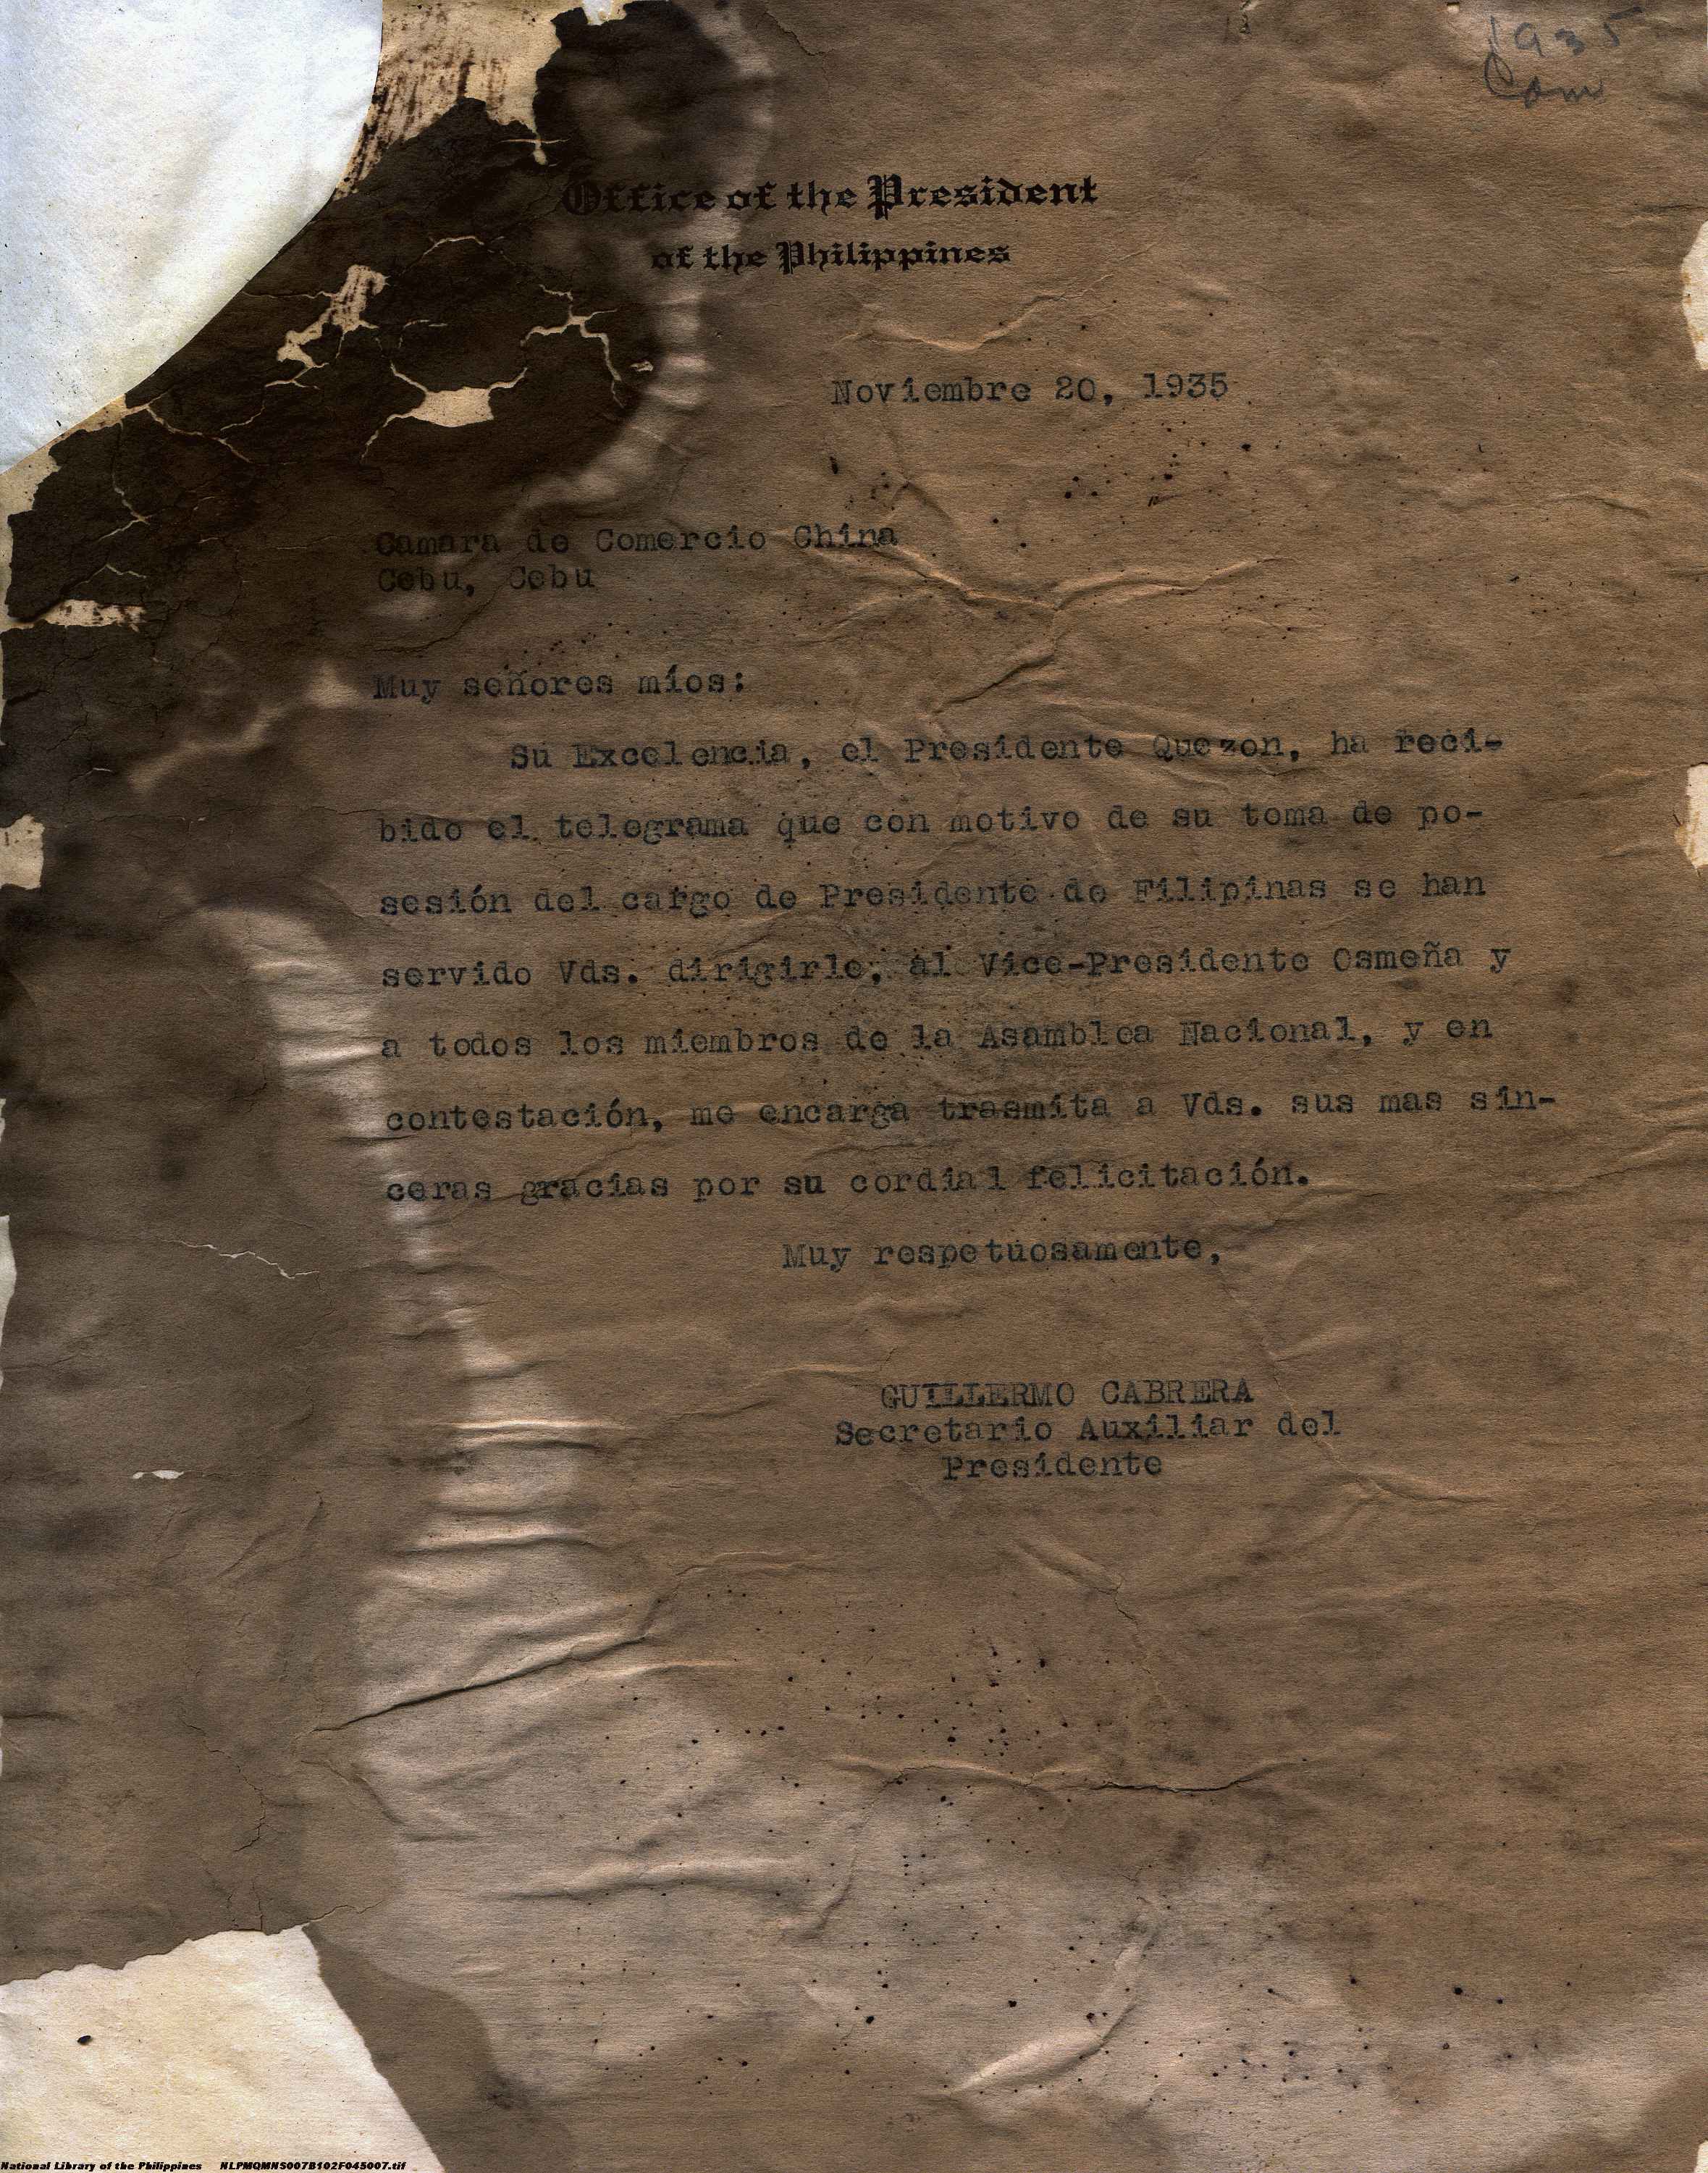 1935
Com
Office of the President
of the Philippines
Noviembre 20, 1935
Camara de Comercio China
Cebu, Cebu
Muy señores míos:
Su Excelencia, el Presidente Quezon, ha reci-
bido el telegrama que con motivo de su toma de po-
sesión del cargo de Presidente de Filipinas se han
servido Vds. dirigirle, al Vice-Presidente Osmeña y
a todos los miembros de la Asamblea Nacional, y en
contestación, me encarga trasmita a Vds. sus mas sin-
ceras gracias por su cordial felicitación.
Muy respetuosamente,
GUILLERMO CABRERA
Secretario Auxiliar del
Presidente
National Library of the Philippines NLPMQMNS007B102F045007.tif